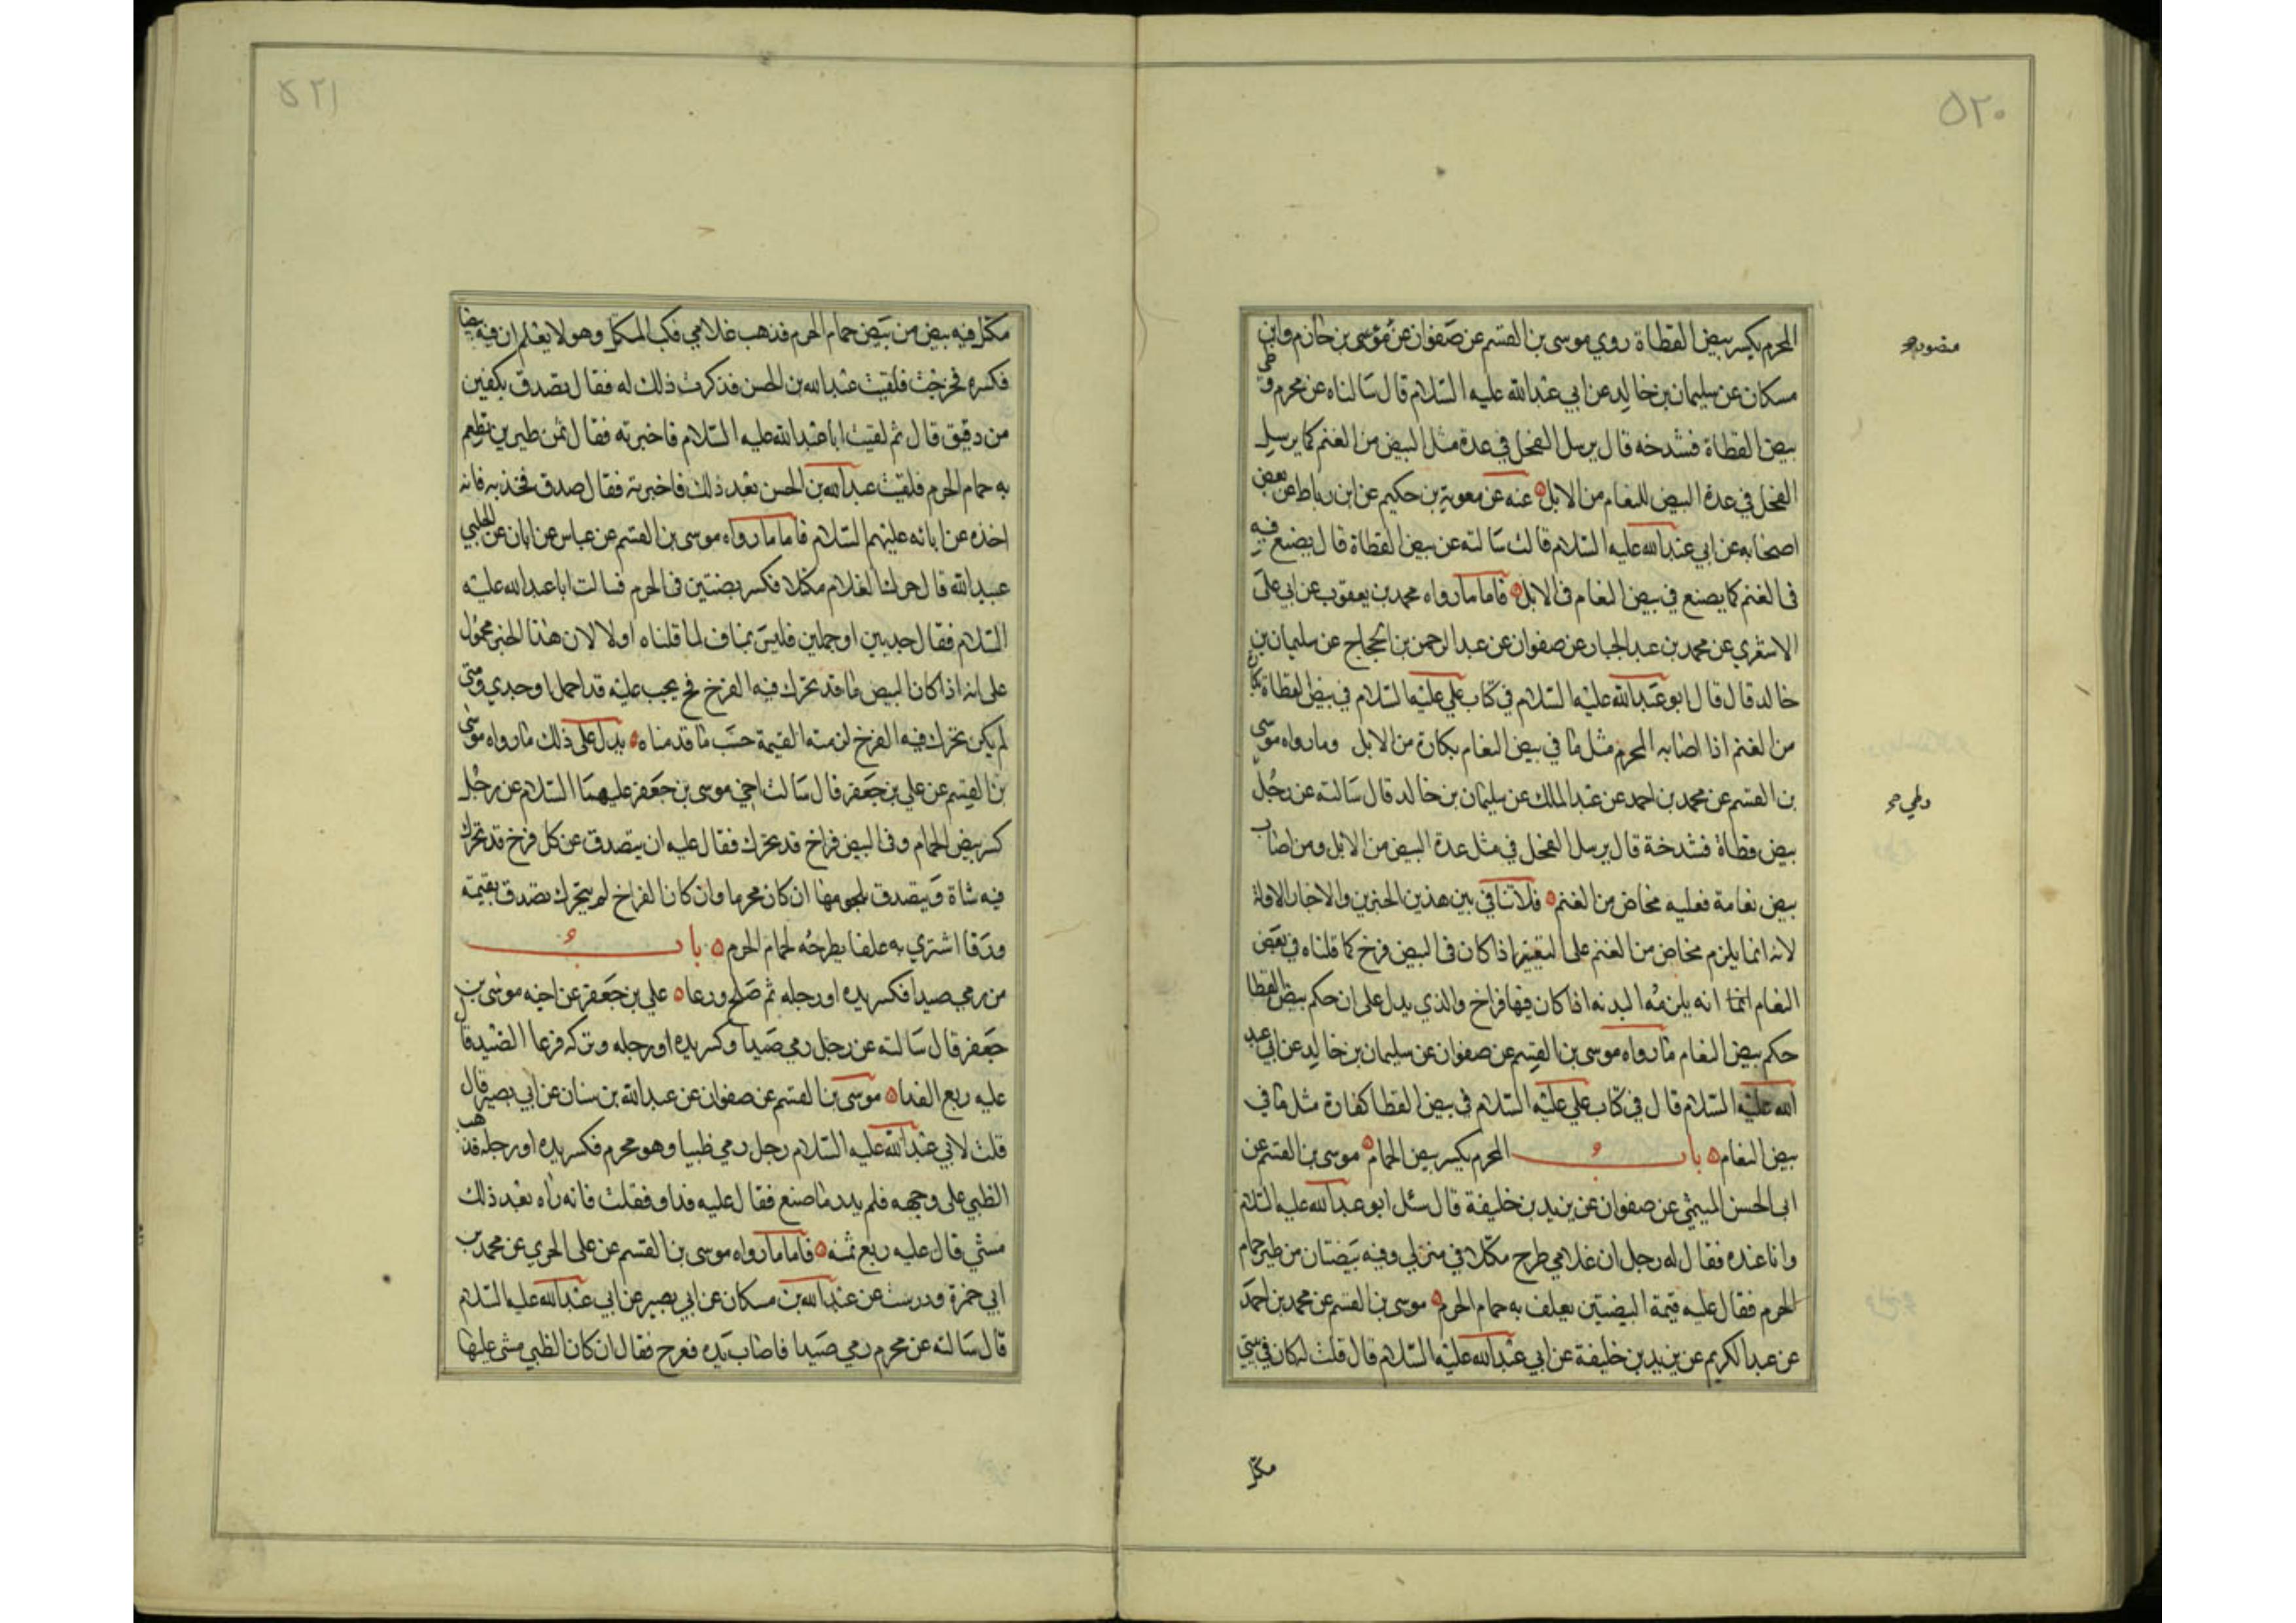 ۵۲۰
المحرم يكسر بيض القطاة روي موسى بن القسم عن صفوان عن موسى بن خازم وابن
مسكان عن سليمان بن خالد عن ابي عبدالله عليه السلام قال سالناه عن محرم وطئ
بيض القطاة فشدخه قال يرسل الفحل في عدة مثل البيض من الغنم كما يرسل
الفحل في عدة البيض للنعام من الابل عنه عن معوية بن حكيم عن ابن رباط عن بعض
اصحابه عن ابي عبدالله عليه السلام قالت سالته عن بيض القطاة قال يصنع فيه
في الغنم كما يصنع في بيض النعام في الابل فاما ما رواه محمد بن يعقوب عن ابي علي
الاشعري عن محمد بن عبد الجبار عن صفوان عن عبد الرحمن بن الحجاج عن سليمان بن
خالد قال قال ابو عبدالله عليه السلام في كتاب علي عليه السلام في بيض القطاة بكارة
من الغنم اذا اصابه المحرم مثل ما في بيض النعام بكارة من الابل وما رواه موسى
بن القسم عن محمد بن احمد عن عبد الملك عن سليمان بن خالد قال سالته عن رجل
وطي
بيض قطاة فشدخة قال يرسل الفحل في مثل عدة البيض من الابل ومن اصاب
بيض نعامة فعليه مخاض من الغنم فلا تنافي بين هذين الخبرين والاخبار الاولة
لانه انما يلزم مخاض من الغنم على التعيين اذا كان في البيض فرخ كما قلناه في بعض
النعام انما انه يلزمه البدنه اذا كان فيها فراخ والذي يدل على ان حكم بيض القطا
حكم بيض النعام ما رواه موسى بن القسم عن صفوان عن سليمان بن خالد عن ابي عبد
الله عليه السلام قال في كتاب علي عليه السلام في بيض القطا كفارة مثل ما في
بيض النعام باب المحرم يكسر بيض الحمام موسى بن القسم عن
ابي الحسن الميثمي عن صفوان عن يزيد بن خليفة قال سئل ابو عبدالله عليه السلام
وانا عنده فقال له رجل ان غلامي طرح مكتلا في منزلي وفيه بيضتان من طير حمام
الحرم فقال عليه قيمة البيضتين يعلف به حمام الحرم موسى بن القسم عن محمد بن احمد
عن عبد الكريم عن يزيد بن خليفة عن ابي عبدالله عليه السلام قال قلت له كان في بيتي
مكتل
۵۲۱
مكتل فيه بيض من بيض حمام الحرم فذهب غلامي فكب المكتل وهو لا يعلم ان فيه بيضا
فكسره فخرجت فلقيت عبدالله بن الحسن فذكرت ذلك له فقال تصدق بكفين
من دقيق قال ثم لقيت ابا عبدالله عليه السلام فاخبرته فقال ثمن طيرين تطعم
به حمام الحرم فلقيت عبدالله بن الحسن بعد ذلك فاخبرته فقال صدق فخذ به فانه
اخذه عن ابائه عليهم السلام فاما ما رواه موسى بن القسم عن عباس عن ابان عن الحلبي
عبيدالله قال حرك الغلام مكتلا فكسر بيضتين في الحرم فسالت ابا عبدالله عليه
السلام فقال جديين او حملين فليس بمناف لما قلناه اولا لان هذا الخبر محمول
على انه اذا كان البيض ما قد تحرك فيه الفرخ فح يجب عليه قد احمل او جدي ومتى
لم يكن تحرك فيه الفرخ لزمته القيمة حسب ما قدمناه يدل على ذلك ما رواه موسى
بن القسم عن علي بن جعفر قال سالت اخي موسى بن جعفر عليهما السلام عن رجل
كسر بيض الحمام وفي البيض فراخ قد تحرك فقال عليه ان يتصدق عن كل فرخ قد تحرك
فيه شاة ويتصدق بلحومها ان كان محرما وان كان الفراخ لم يتحرك تصدق بقيمته
ورقا اشتري به علفا يطرحه لحمام الحرم باب
من رمي صيدا فكسر يده او رجله ثم صلح ورعا علي بن جعفر عن اخيه موسى بن
جعفر قال سالته عن رجل رمي صيدا وكسر يده او رجله وتركه فرعا الصيد قال
عليه ربع الفدا موسى بن القسم عن صفوان عن عبدالله بن سنان عن ابي بصير قال
قلت لابي عبدالله عليه السلام رجل رمي ظبيا وهو محرم فكسر يده او رجله فذهب
الظبي على وجهه فلم يدر ما صنع فقال عليه فداؤ فقلت فانه راه بعد ذلك
مشي قال عليه ربع ثمنه فاما ما رواه موسى بن القسم عن علي الجرمي عن محمد بن
ابي حمزة ودرست عن عبدالله بن مسكان عن ابي بصير عن ابي عبدالله عليه السلام
قال سالته عن محرم رمي صيدا فاصاب يده فعرج فقال ان كان الظبي مشى عليها